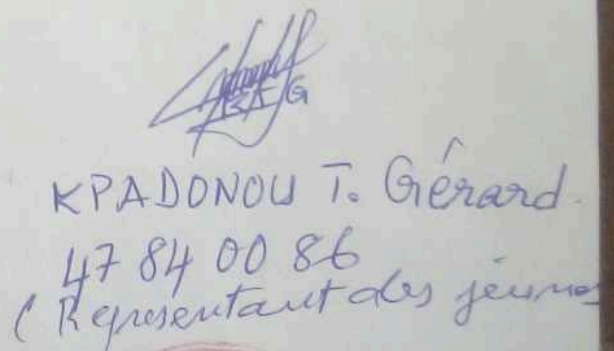 KPADONOU T. Gérard.
47 84 00 86
(Représentant des jeunes